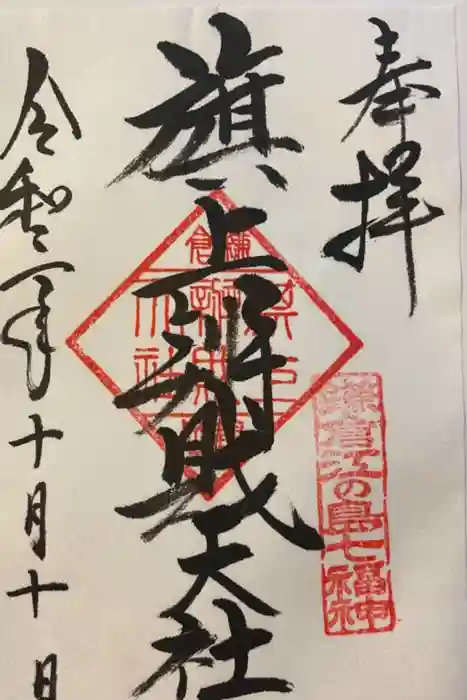 奉拝
旗上辨財天社
鎌倉江の島七福神
令和二年十月十日